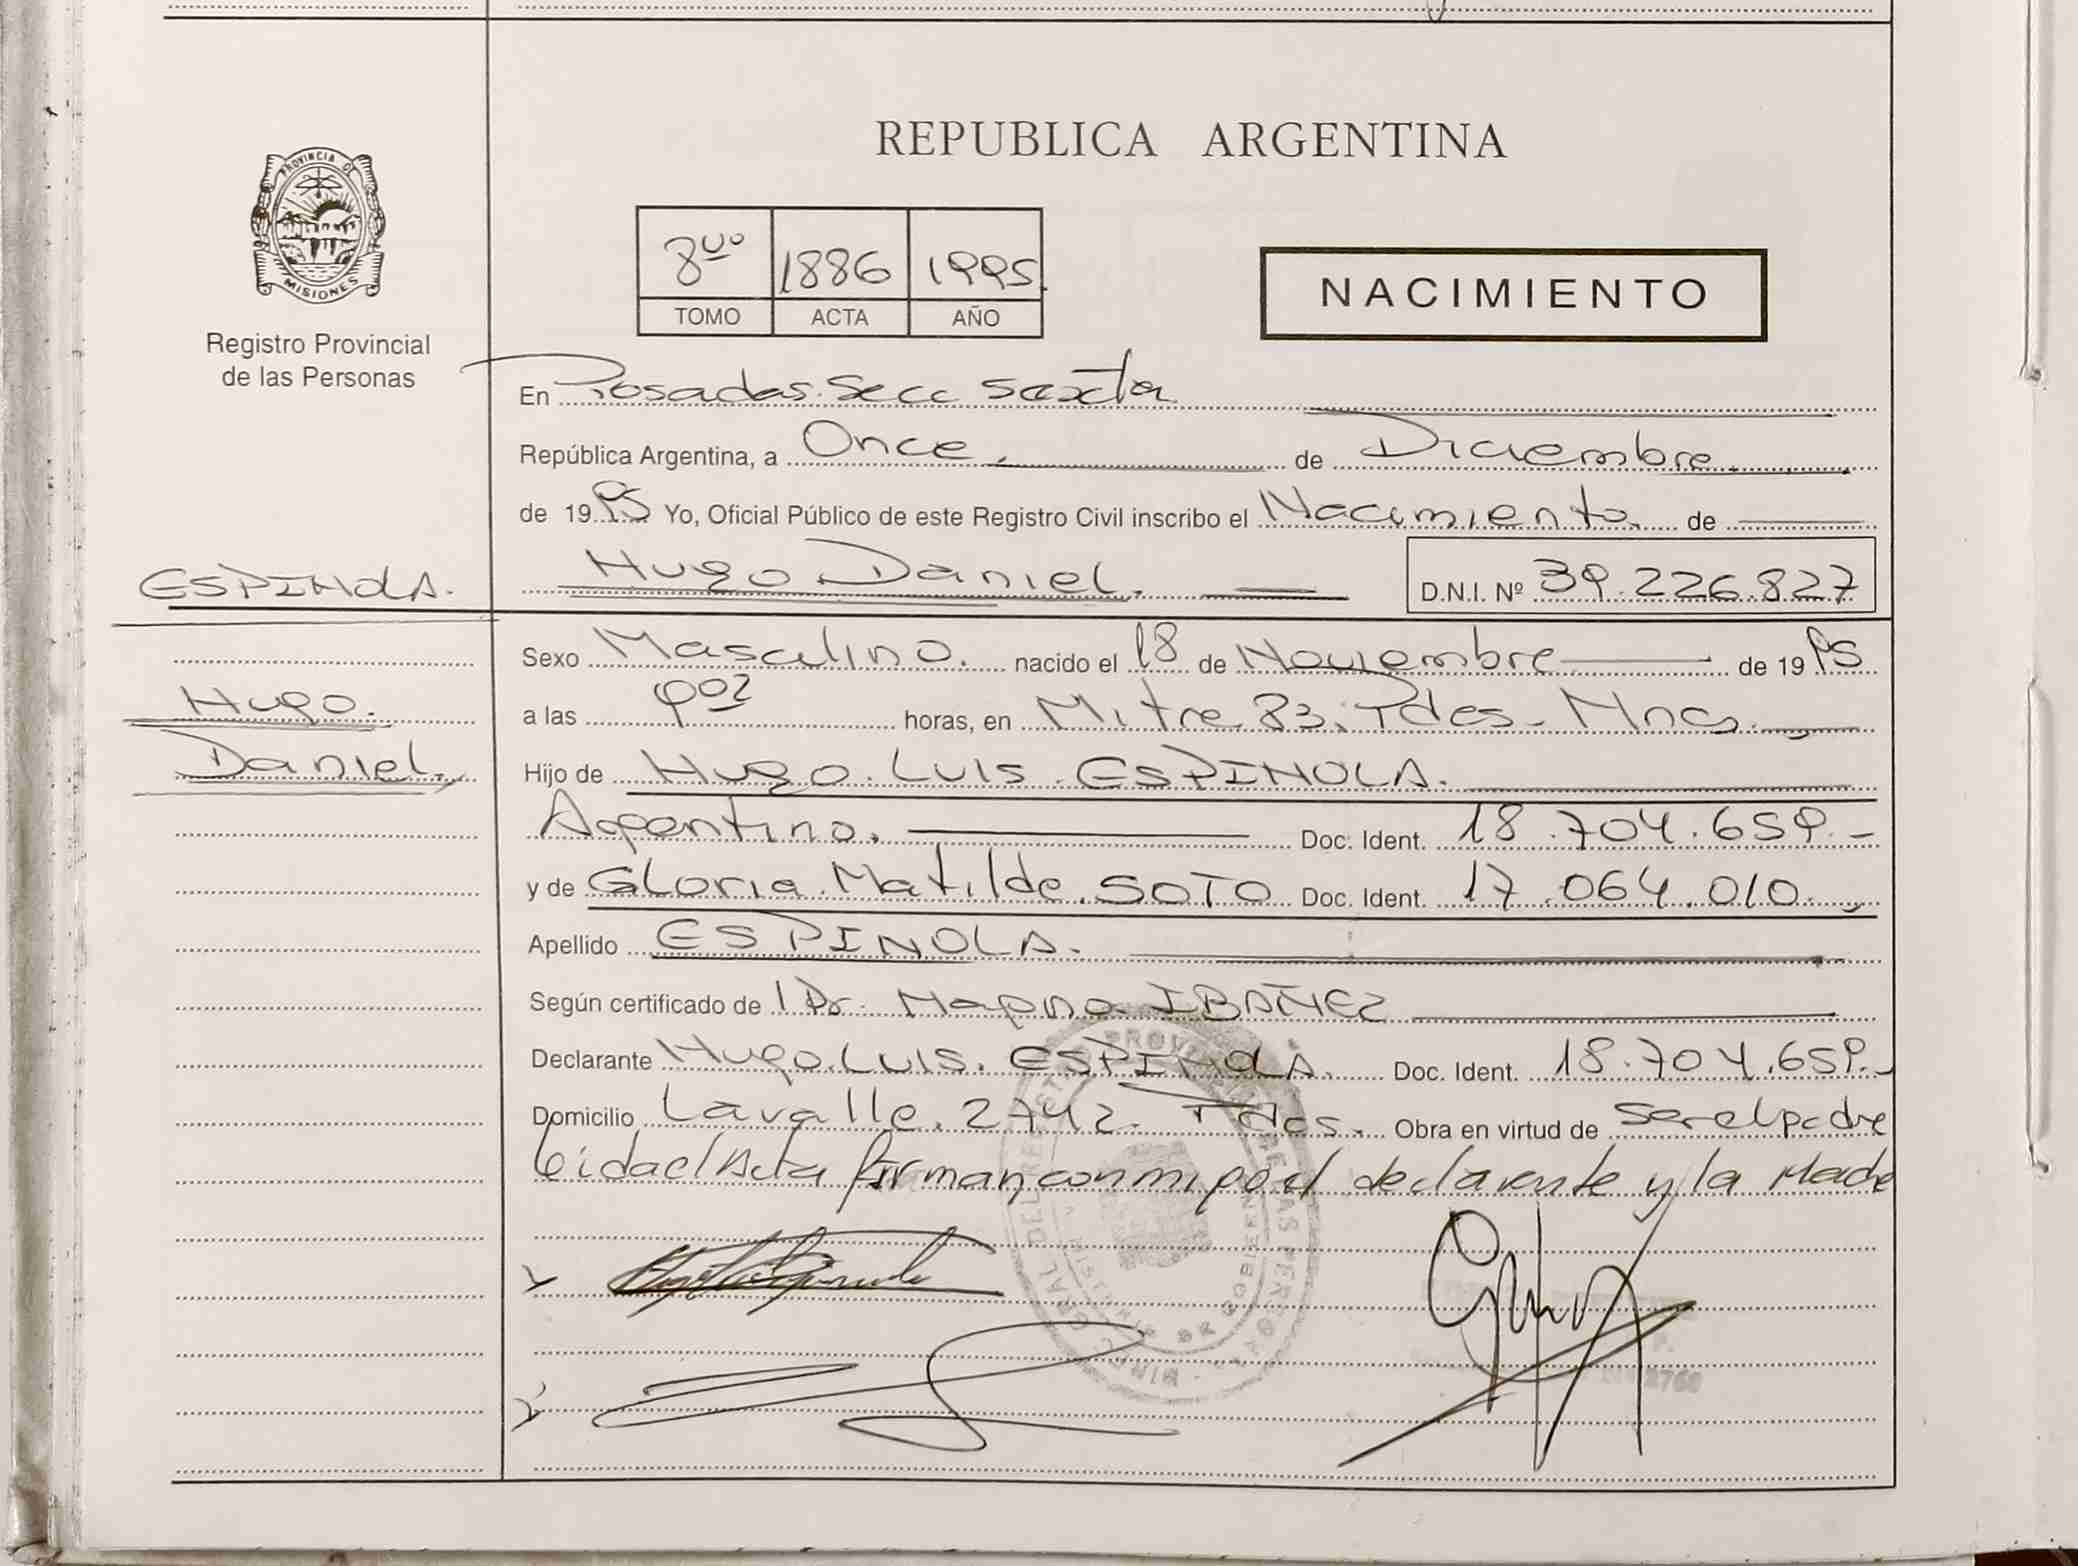 REPUBLICA ARGENTINA
PROVINCIA DE
MISIONES
Registro Provincial
de las Personas
8vo 1886 1995
TOMO ACTA AÑO
NACIMIENTO
En Posadas. Secc Sexta
República Argentina, a Once de Diciembre
de 1995 Yo, Oficial Público de este Registro Civil inscribo el Nacimiento de
ESPINOLA.
Hugo Daniel. D.N.I. Nº 39.226.827
Hugo.
Daniel.
Sexo Masculino. nacido el 18 de Noviembre de 1995
a las 9 02 horas, en Mitre 83. Pdes. Mnes.
Hijo de Hugo Luis ESPINOLA.
Argentino. Doc. Ident. 18.704.659.-
y de Gloria Matilde SOTO Doc. Ident. 17.064.010.
Apellido ESPINOLA.
Según certificado de l Dr. Magno IBAÑEZ
Declarante Hugo Luis ESPINOLA. Doc. Ident. 18.704.659.-
Domicilio Lavalle 2742. Pdes. Obra en virtud de ser el padre
Leida el Acta firman conmigo el declarante y la Madre